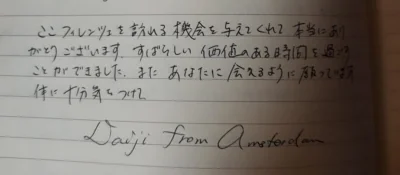 ここフィレンツェを訪れる機会を与えてくれて 本当にあり
がとうございます。すばらしい価値のある時間を過ごす
ことができました。また あなたに会えるように願っています
体に十分気をつけて
Daiji from Amsterdam